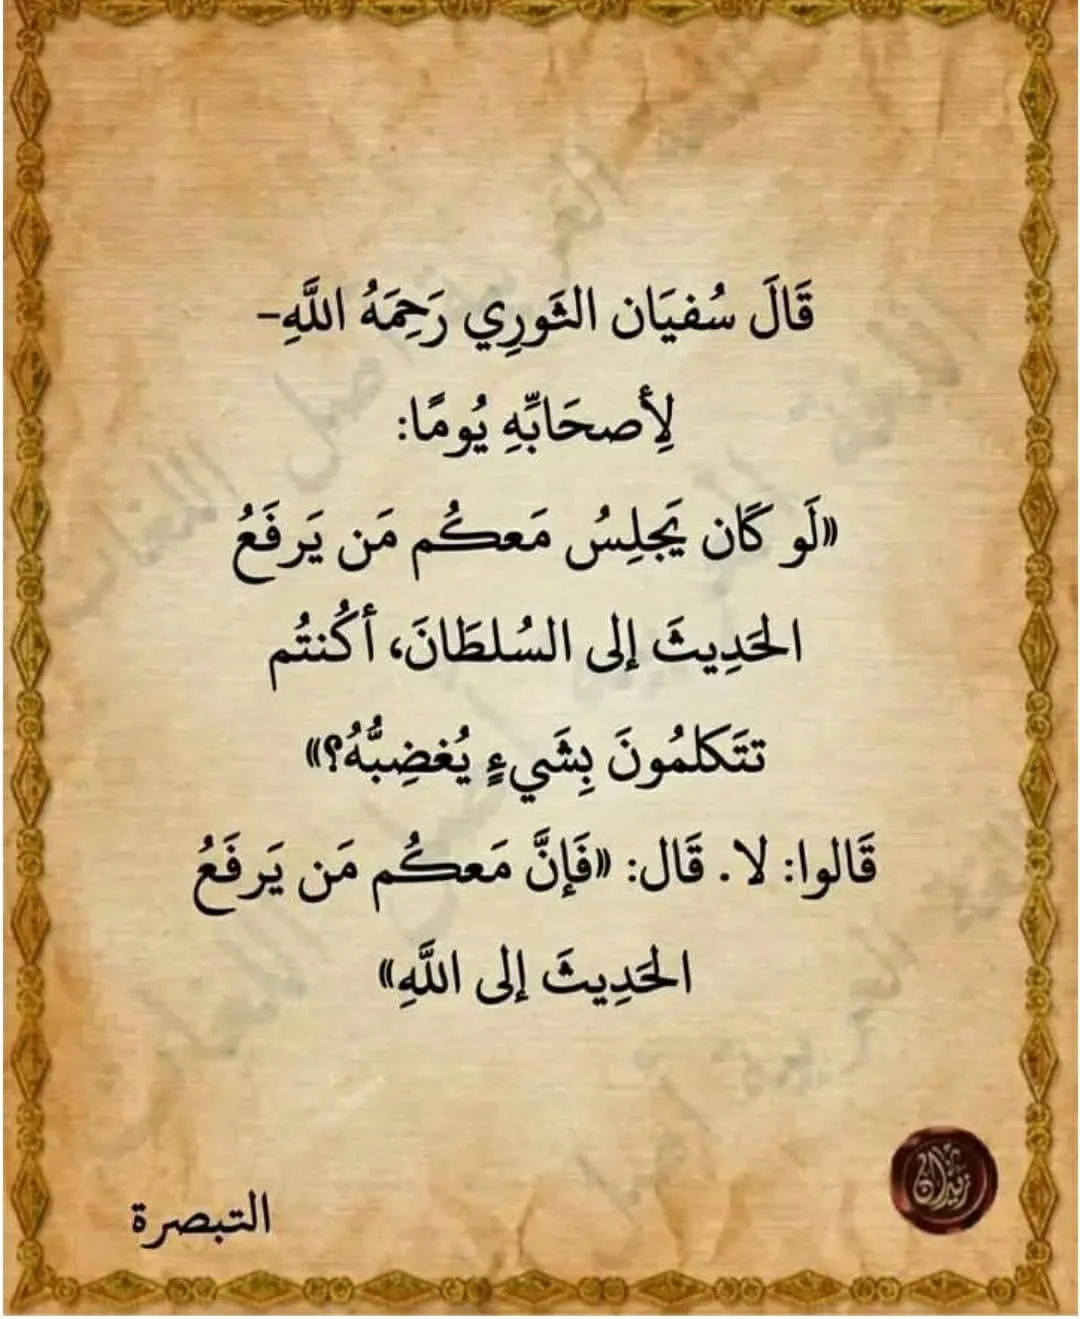 قَالَ سُفيَان الثَورِي رَحِمَهُ اللَّهِ-
لِأصحَابِّهِ يُومًا:
«لَو كَان يَجلِسُ مَعكُم مَن يَرفَعُ
الحَدِيثَ إلى السُلطَانَ، أكُنتُم
تتَكلمُونَ بِشَيءٍ يُغضِبُّهُ؟»
قَالوا: لا. قَال: «فَإنَّ مَعكُم مَن يَرفَعُ
الحَدِيثَ إلى اللَّهِ»
التبصرة